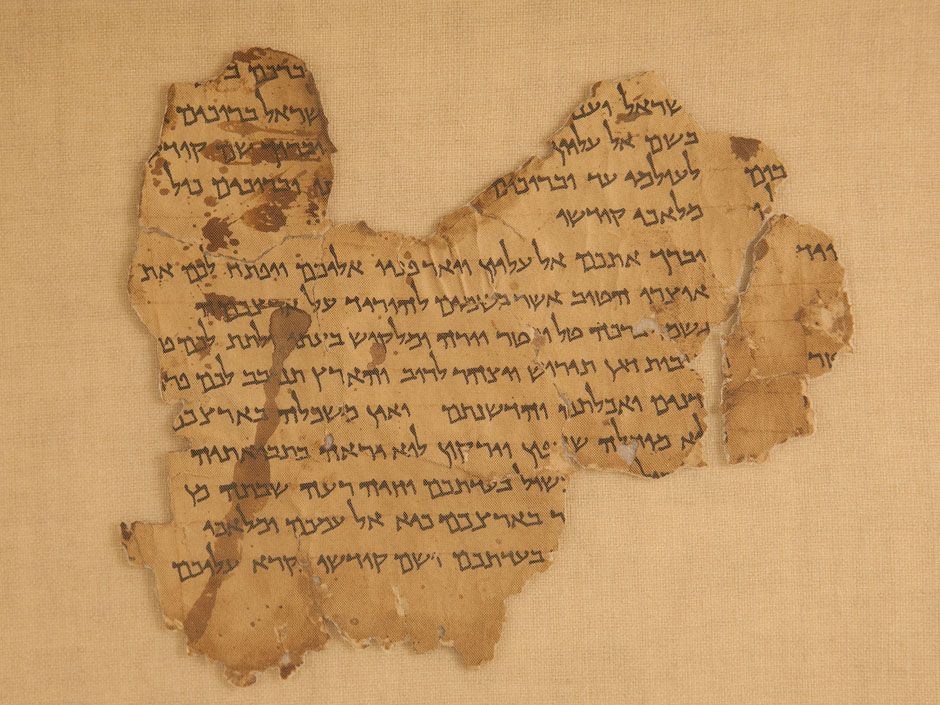 ברכם ב
שראל וענ שראל ברוכים
בשם אל עליון וברוך שם קודש
לעולמי עד וברוכים וברוכים כול
מלאכי קודשו
יברך אתכם אל עליון ויאר פניו אליכם ויפתח לכם את
אוצרו הטוב אשר בשמים להוריד על ארצכם
גשמי ברכה טל ומטר יורה ומלקוש בעתו ולתת לכם
דגן תירוש ויצהר לרוב והארץ תנובב לכם פרי
ואכלתם והדשנתם ואין משכלה בארצכם
לא מוחלה ש פון וירקון לוא יראה בתבואתיה
שול בעדתכם וחיה רעה שבתה מן
ר בארצכם כיא אל עמכם ומלאכי
בעדתכם ושם קודשו נקרא עליכם